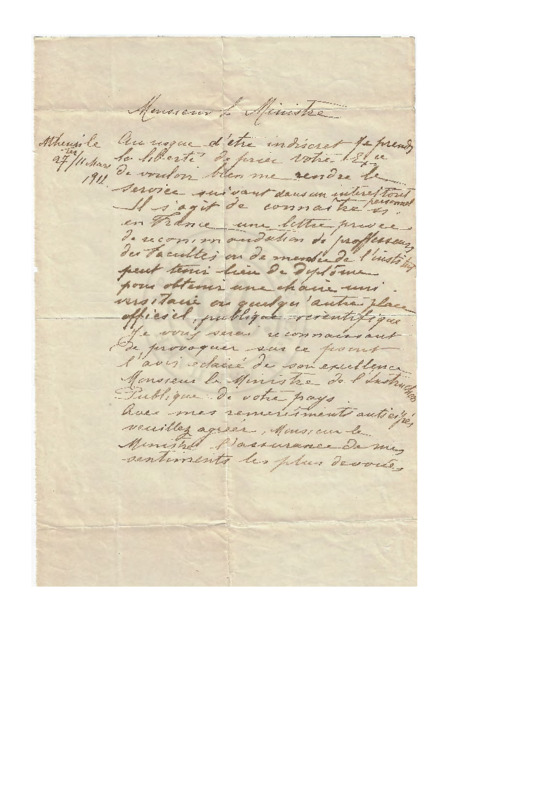 Monsieur le Ministre
Athènes le
27/11 Mars
1911
Au risque d'être indiscret je prends
la liberté de prier votre Exce
de vouloir bien me rendre le
service suivant dans un intérêt tout
personnel
Il s'agit de connaître si
en France une lettre privée
de recommandation de professeurs
des facultés ou de membre de l'institut
peut tenir lieu de diplôme
pour obtenir une chaire uni
versitaire ou quelqu'autre place
officiel, publique scientifique
Je vous serai reconnaissant
de provoquer sur ce point
l'avis éclairé de son excellence
Monsieur le Ministre de l'Instruction
Publique de votre pays
Avec mes remerciments anticipés
veuillez agréer, Monsieur le
Ministre l'assurance de mes
sentiments les plus devoués